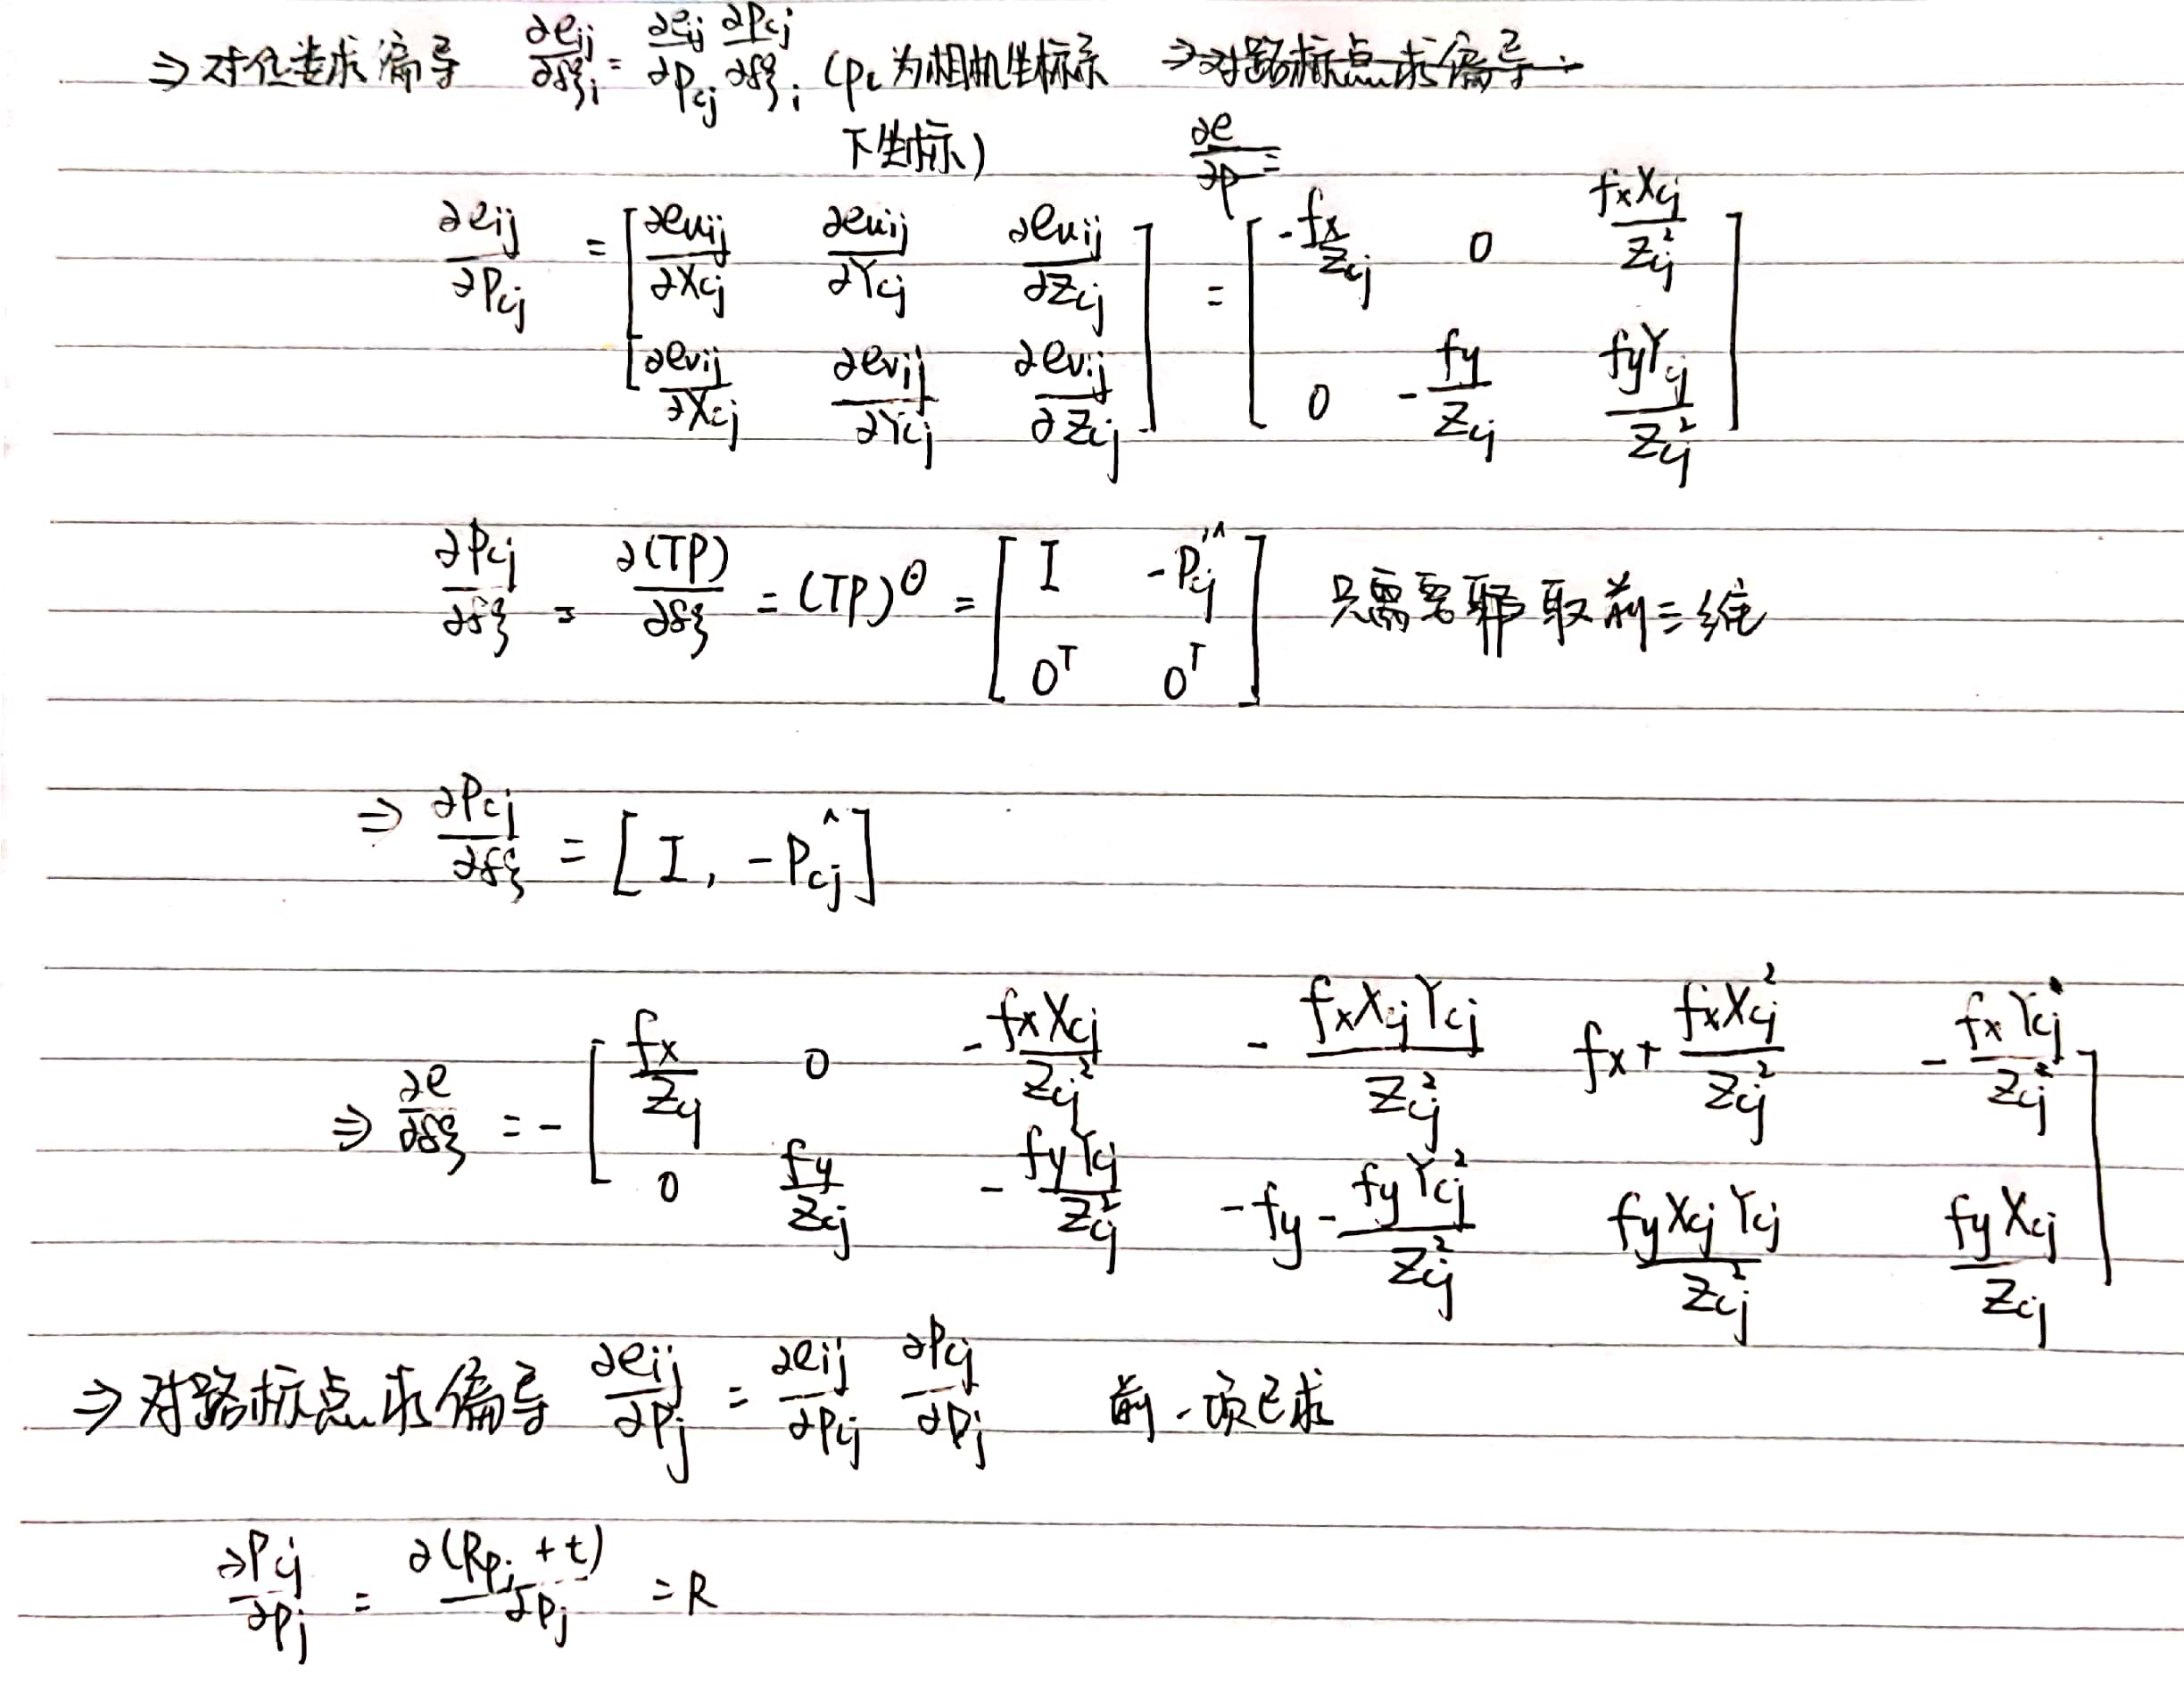 ⇒ 对位姿求偏导 ∂e_ij/∂δξ_i = ∂e_ij/∂P_cj ∂P_cj/∂δξ_i (P_c 为相机坐标系 ⇒对路标点求偏导:
下坐标) ∂e/∂p =
∂e_ij/∂P_cj = [∂e_uij/∂X_cj ∂e_uij/∂Y_cj ∂e_uij/∂Z_cj; ∂e_vij/∂X_cj ∂e_vij/∂Y_cj ∂e_vij/∂Z_cj] = [-f_x/Z_cj 0 f_xX_cj/Z_cj^2; 0 -f_y/Z_cj f_yY_cj/Z_cj^2]
∂P_cj/∂δξ = ∂(TP)/∂δξ = (TP)^⊙ = [I -P_cj'^∧; 0^T 0^T] 只需要取前三维
⇒ ∂P_cj/∂δξ = [I, -P_cj^∧]
⇒ ∂e/∂δξ = -[f_x/Z_cj 0 -f_xX_cj/Z_cj^2 -f_xX_cjY_cj/Z_cj^2 f_x+f_xX_cj^2/Z_cj^2 -f_xY_cj/Z_cj^2; 0 f_y/Z_cj -f_yY_cj/Z_cj^2 -f_y-f_yY_cj^2/Z_cj^2 f_yX_cjY_cj/Z_cj^2 f_yX_cj/Z_cj]
⇒ 对路标点求偏导 ∂e_ij/∂P_j = ∂e_ij/∂P_cj ∂P_cj/∂P_j 前一项已求
∂P_cj/∂P_j = ∂(RP_j+t)/∂P_j = R